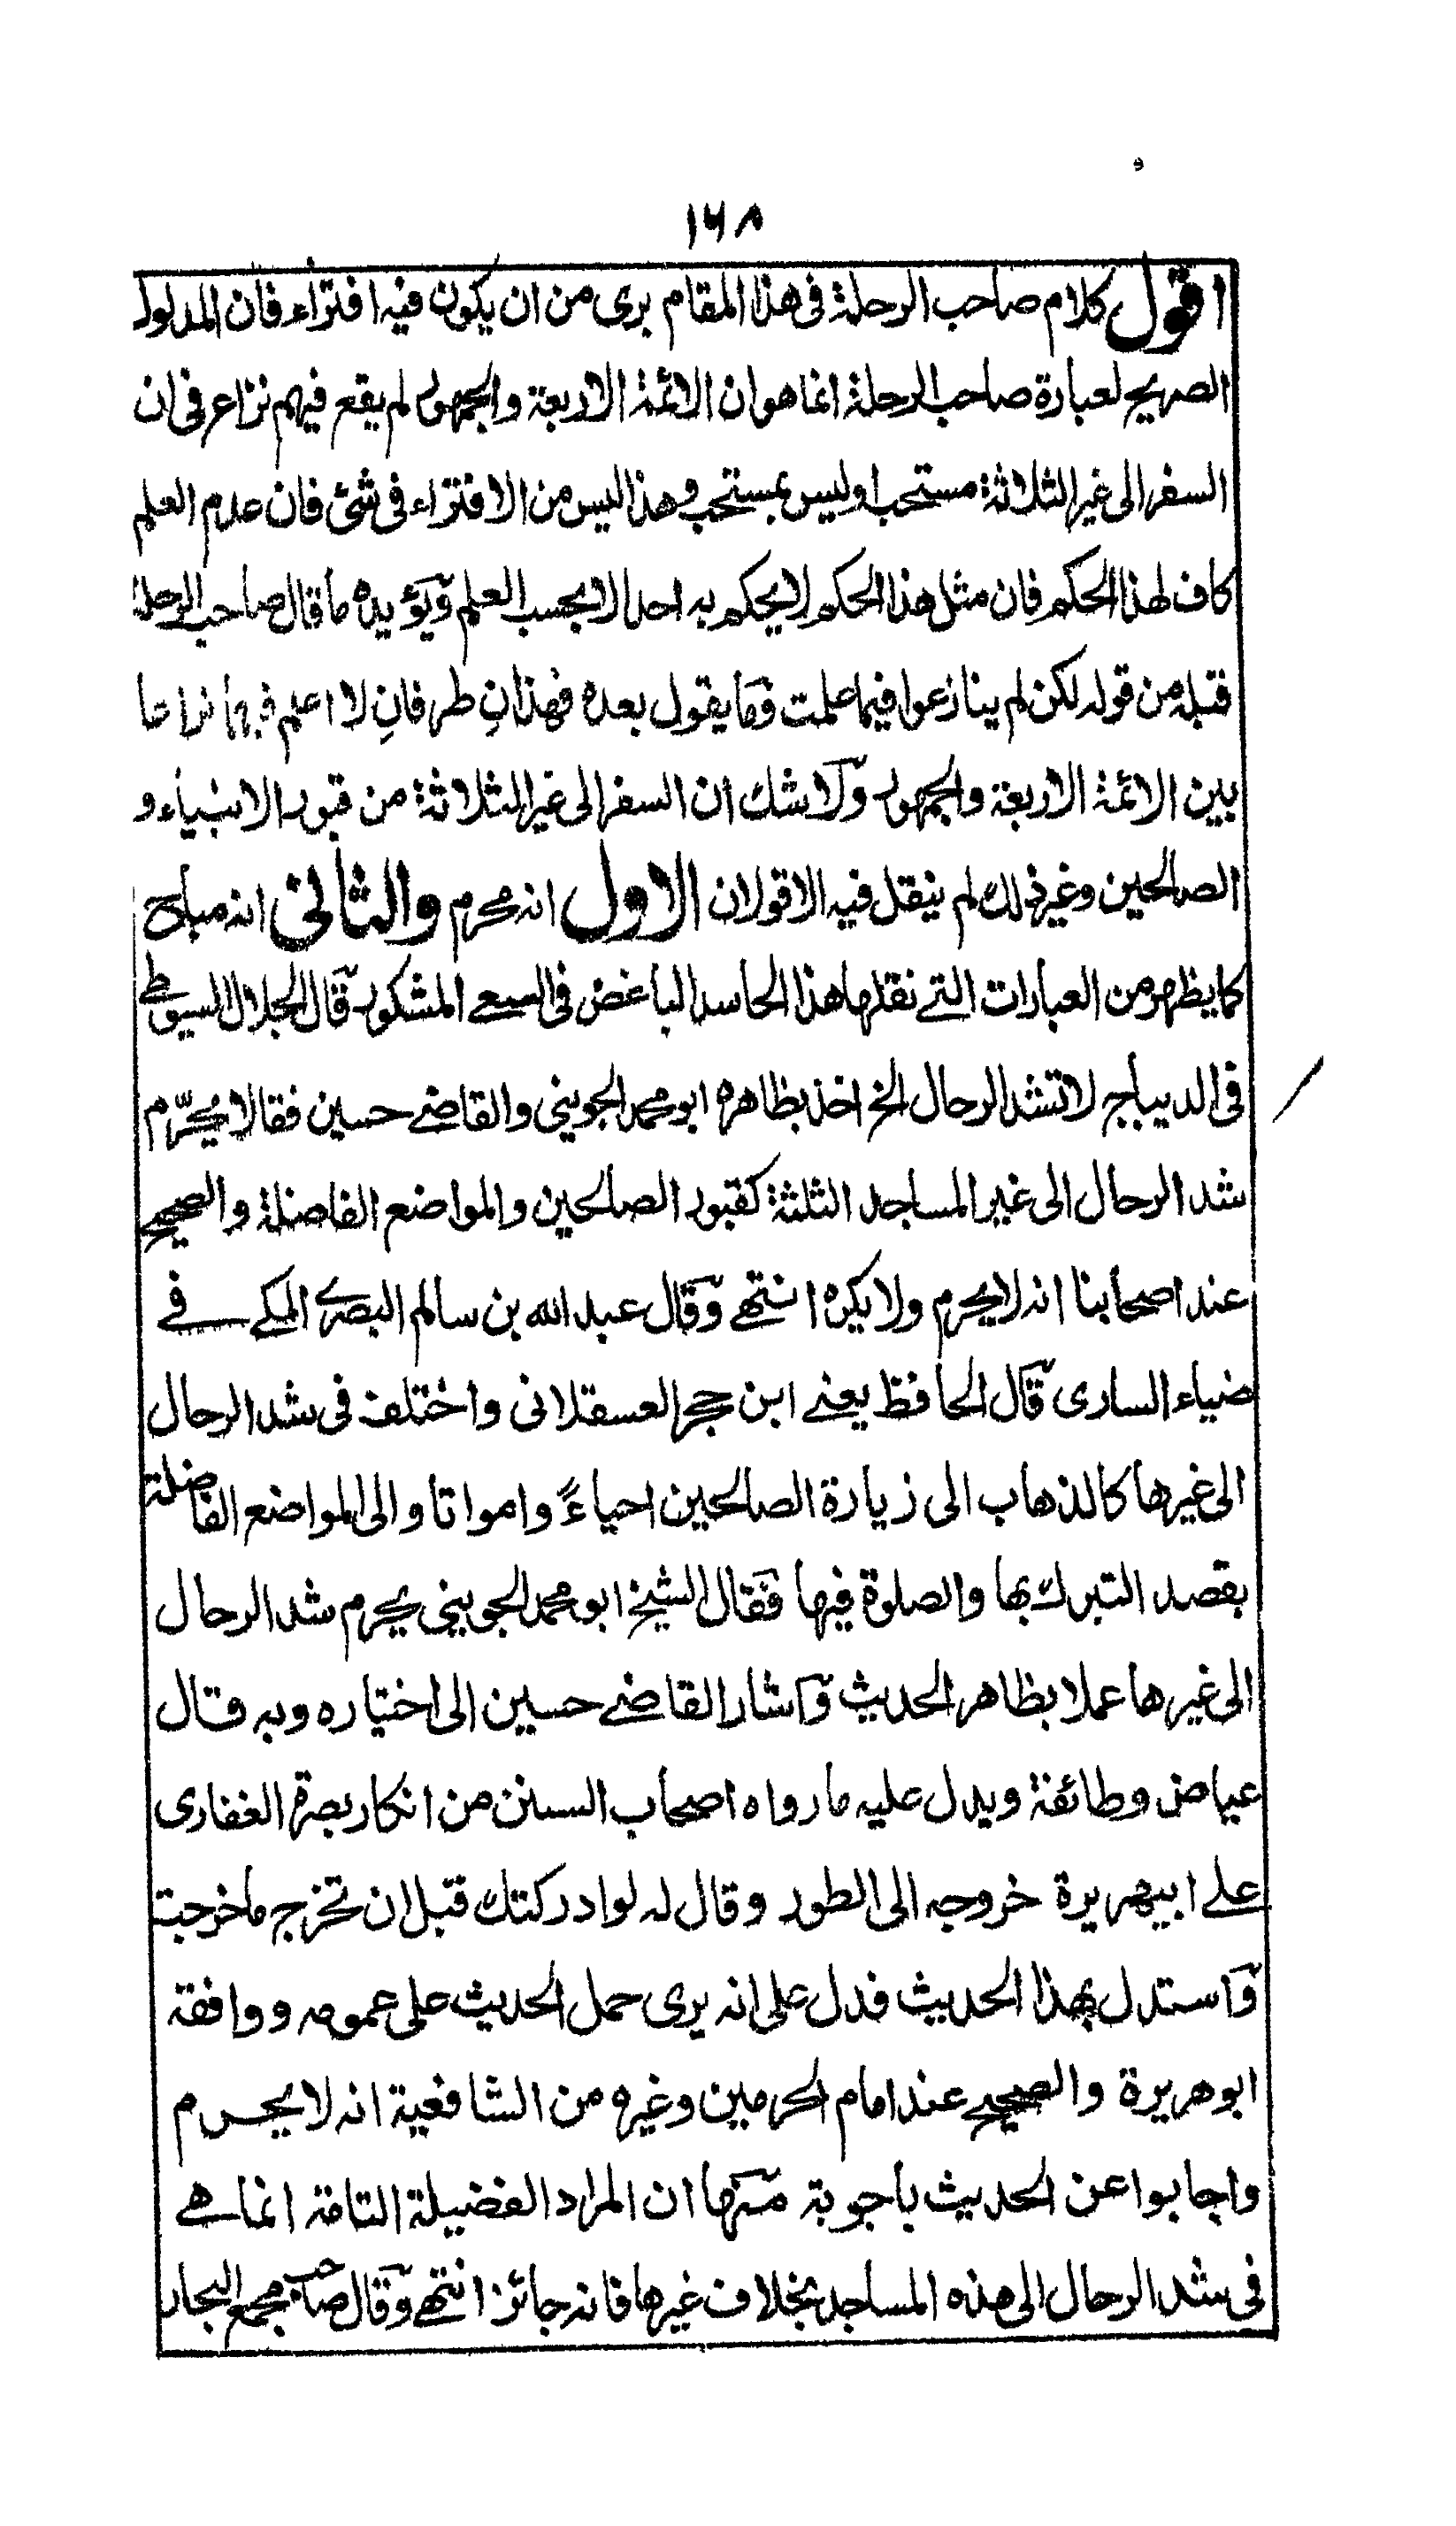 ١٦٨
اقول كلام صاحب الرحلة فى هذا المقام برى من ان يكون فيه افتراء فان المدلول
الصريح لعبارة صاحب الرحلة انما هو ان الائمة الاربعة والجمهور لم يقع فيهم نزاع فى ان
السفر الى غير الثلاثة مستحب او ليس بمستحب وهذا ليس من الافتراء فى شئ فان عدم العلم
كاف لهذا الحكم فان مثل هذا الحكم لا يحكم به احد الا بحسب العلم ويؤيده ما قال صاحب الرحلة
قبله من قوله لكن لم ينازعوا فيما علمت وما يقول بعده فهذانِ طرفانِ لا اعلم فيهما نزاعا
بين الائمة الاربعة والجمهور ولا شك ان السفر الى غير الثلاثة من قبور الانبياء و
الصالحين وغير ذلك لم ينقل فيه الا قولان الاول انه محرم والثانى انه مباح
كما يظهر من العبارات التے نقلها هذا الحاسد الباغض فى السعے المشكور قال الجلال السيوطے
فى الديباج لا تشد الرحال الخ اخذ بظاهره ابو محمد الجوينى والقاضے حسين فقالا يحرّم
شد الرحال الى غير المساجد الثلثة كقبور الصالحين والمواضع الفاضلة والصحيح
عند اصحابنا انه لا يحرم ولا يكره انتهے وقال عبد الله بن سالم البصرے المكے فے
ضياء السارى قال الحافظ يعنے ابن حجر العسقلانى واختلف فى شد الرحال
الى غيرها كالذهاب الى زيارة الصالحين احياءً وامواتا والى المواضع الفاضلة
بقصد التبرك بها والصلوة فيها فقال الشيخ ابو محمد الجوينى يحرم شد الرحال
الى غيرها عملا بظاهر الحديث واشار القاضے حسين الى اختياره وبه قال
عياض وطائفة ويدل عليه ما رواه اصحاب السنن من انكار بصرة الغفارى
علے ابيهريرة خروجه الى الطور وقال له لو ادركتك قبل ان تخرج ما خرجت
واستدل بهذا الحديث فدل على انه يرى حمل الحديث على عمومه ووافقه
ابو هريرة والصحيح عند امام الحرمين وغيره من الشافعية انه لا يحرم
واجابوا عن الحديث باجوبة منها ان المراد الفضيلة التامة انما هے
فى شد الرحال الى هذه المساجد بخلاف غيرها فانه جائز انتهے وقال صاحب مجمع البحار